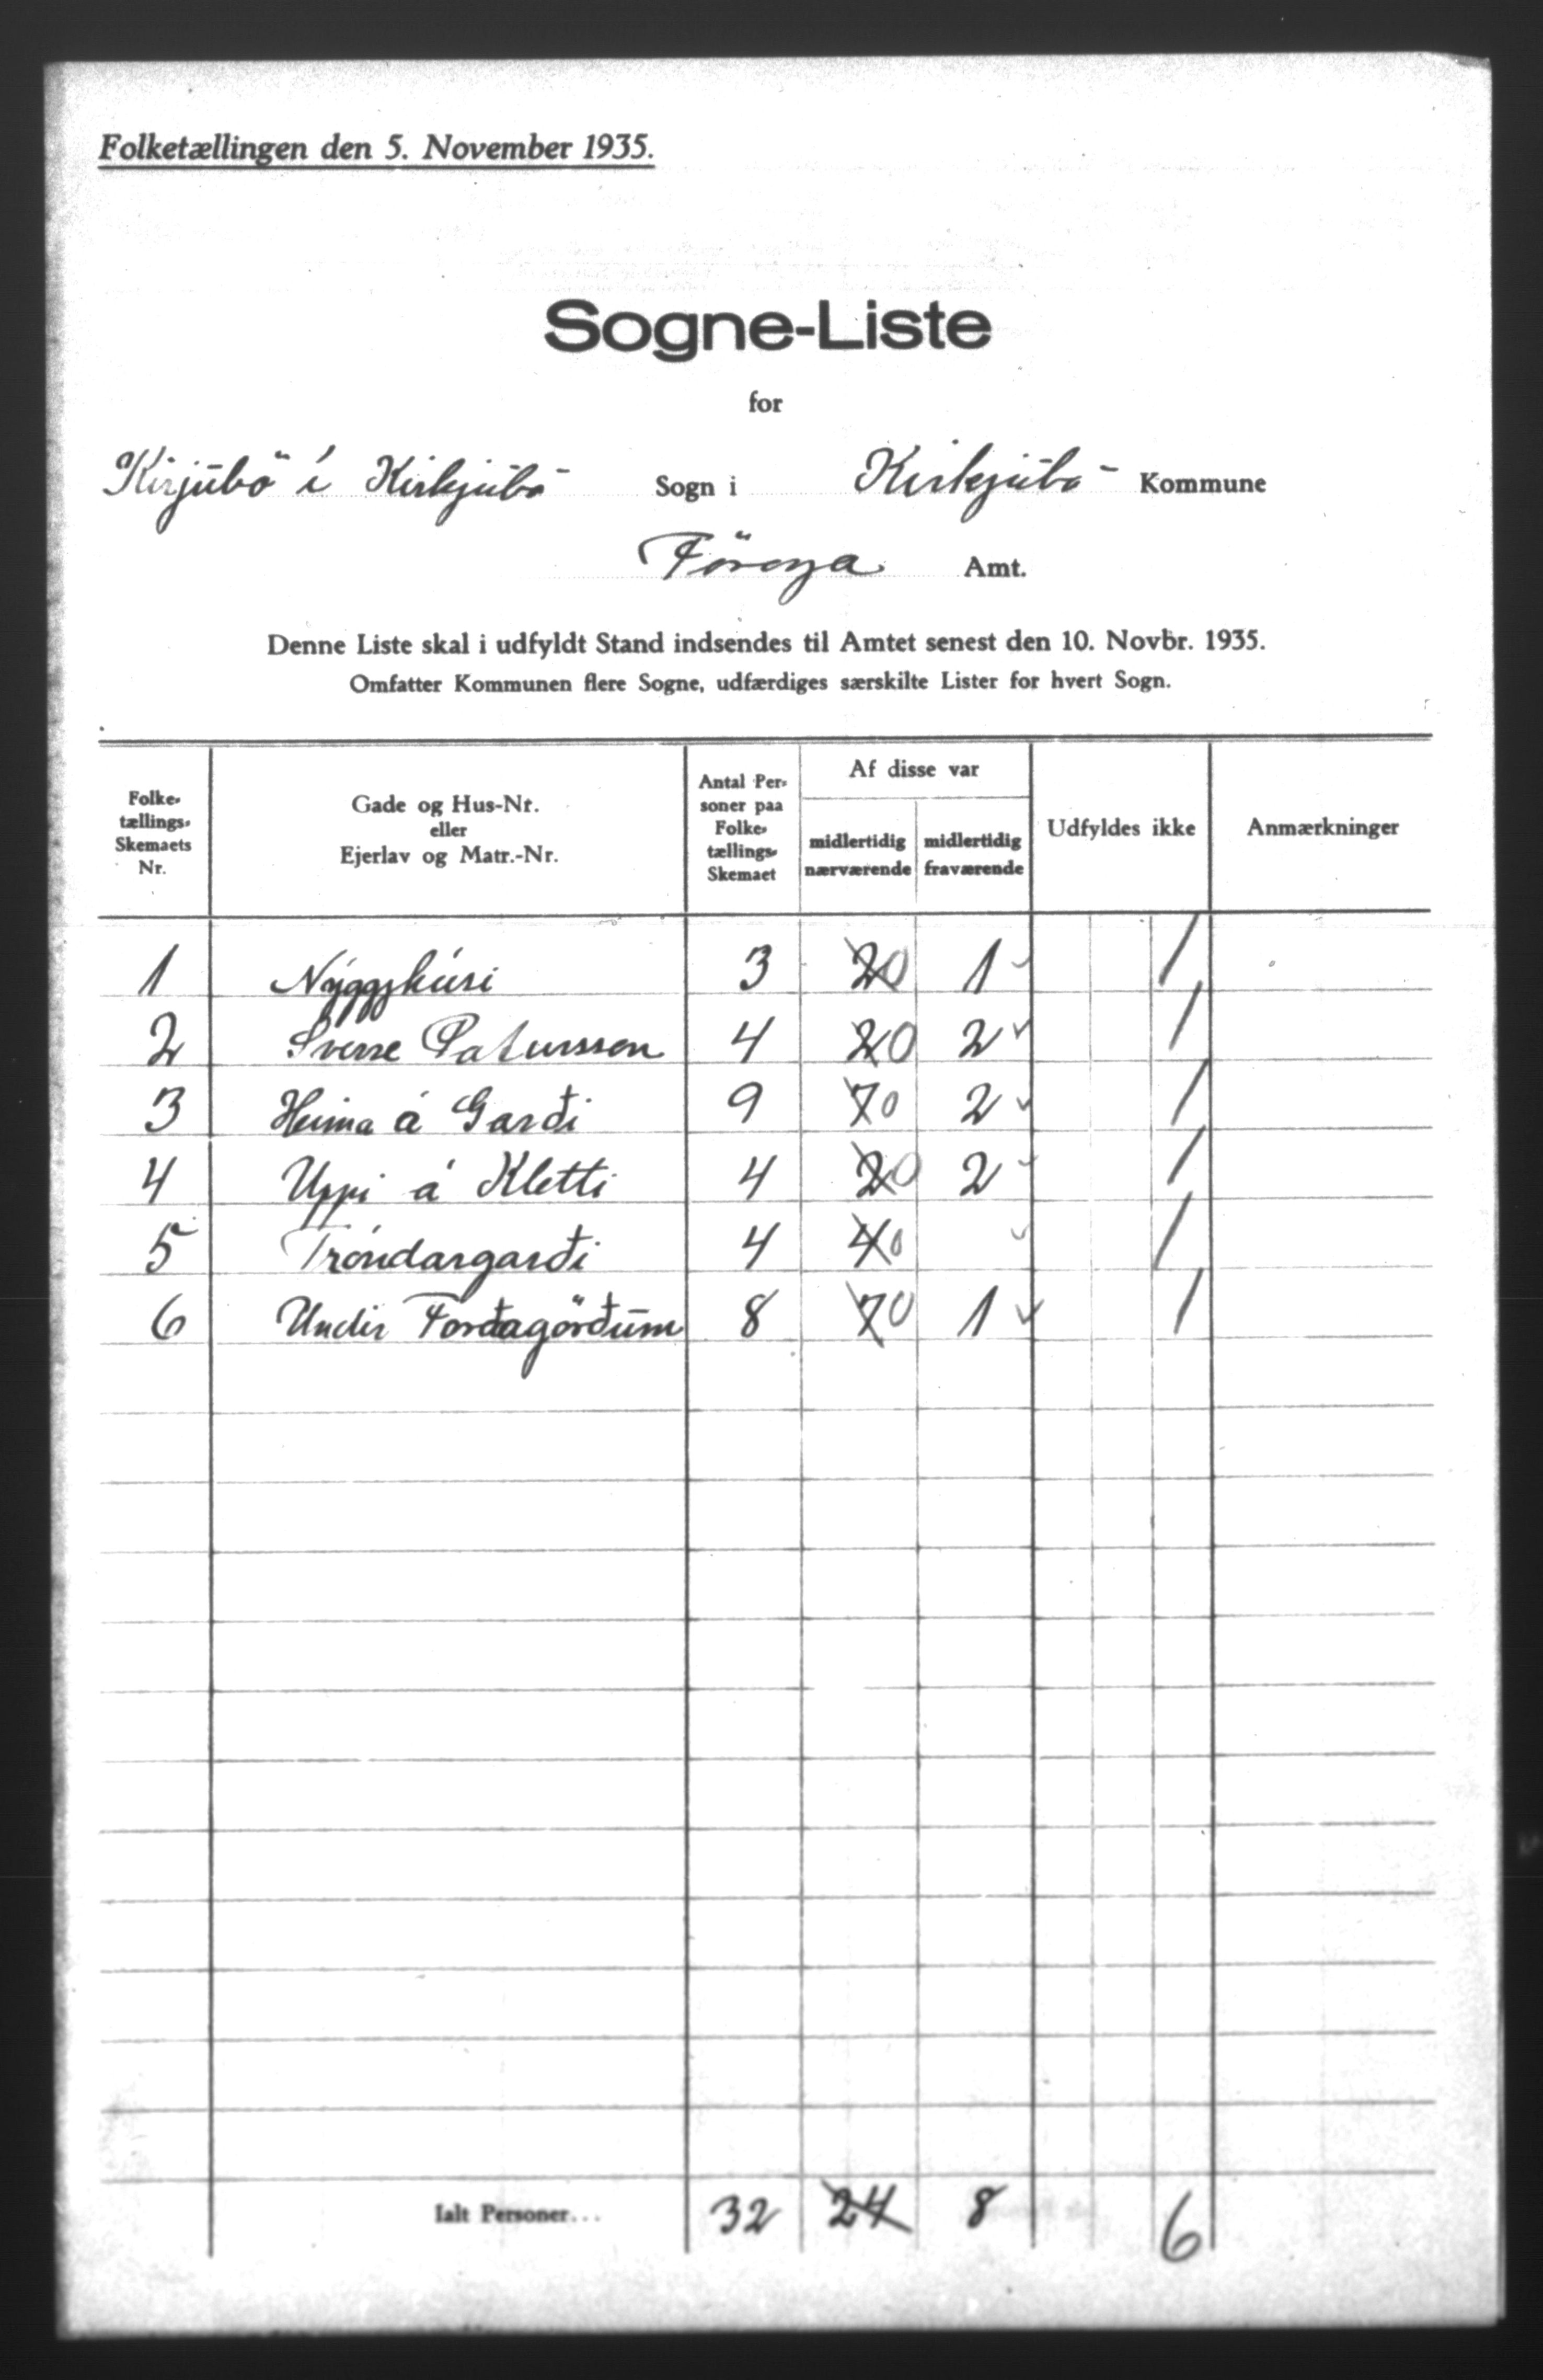 Folketællingen den 5. November 1935.
Sogne-Liste
for
Kirjubö í Kirkjubö Sogn i Kirkjubö Kommune
Föroya Amt.
Denne Liste skal i udfyldt Stand indsendes til Amtet senest den 10. Novbr. 1935.
Omfatter Kommunen flere Sogne, udfærdiges særskilte Lister for hvert Sogn.
Folketællings-Skemaets Nr. | Gade og Hus-Nr. eller Ejerlav og Matr.-Nr. | Antal Personer paa Folketællings-Skemaet | Af disse var midlertidig nærværende | midlertidig fraværende | Udfyldes ikke | Anmærkninger
1 Nýggjhúsi 3 2 0 1 /
2 Sverre Patursson 4 2 0 2 /
3 Heima á Garði 9 7 0 2 /
4 Uppi á Kletti 4 2 0 2 /
5 Tróndargarði 4 4 0 /
6 Undir Forðagörðum 8 7 0 1 /
Ialt Personer... 32 24 8 6